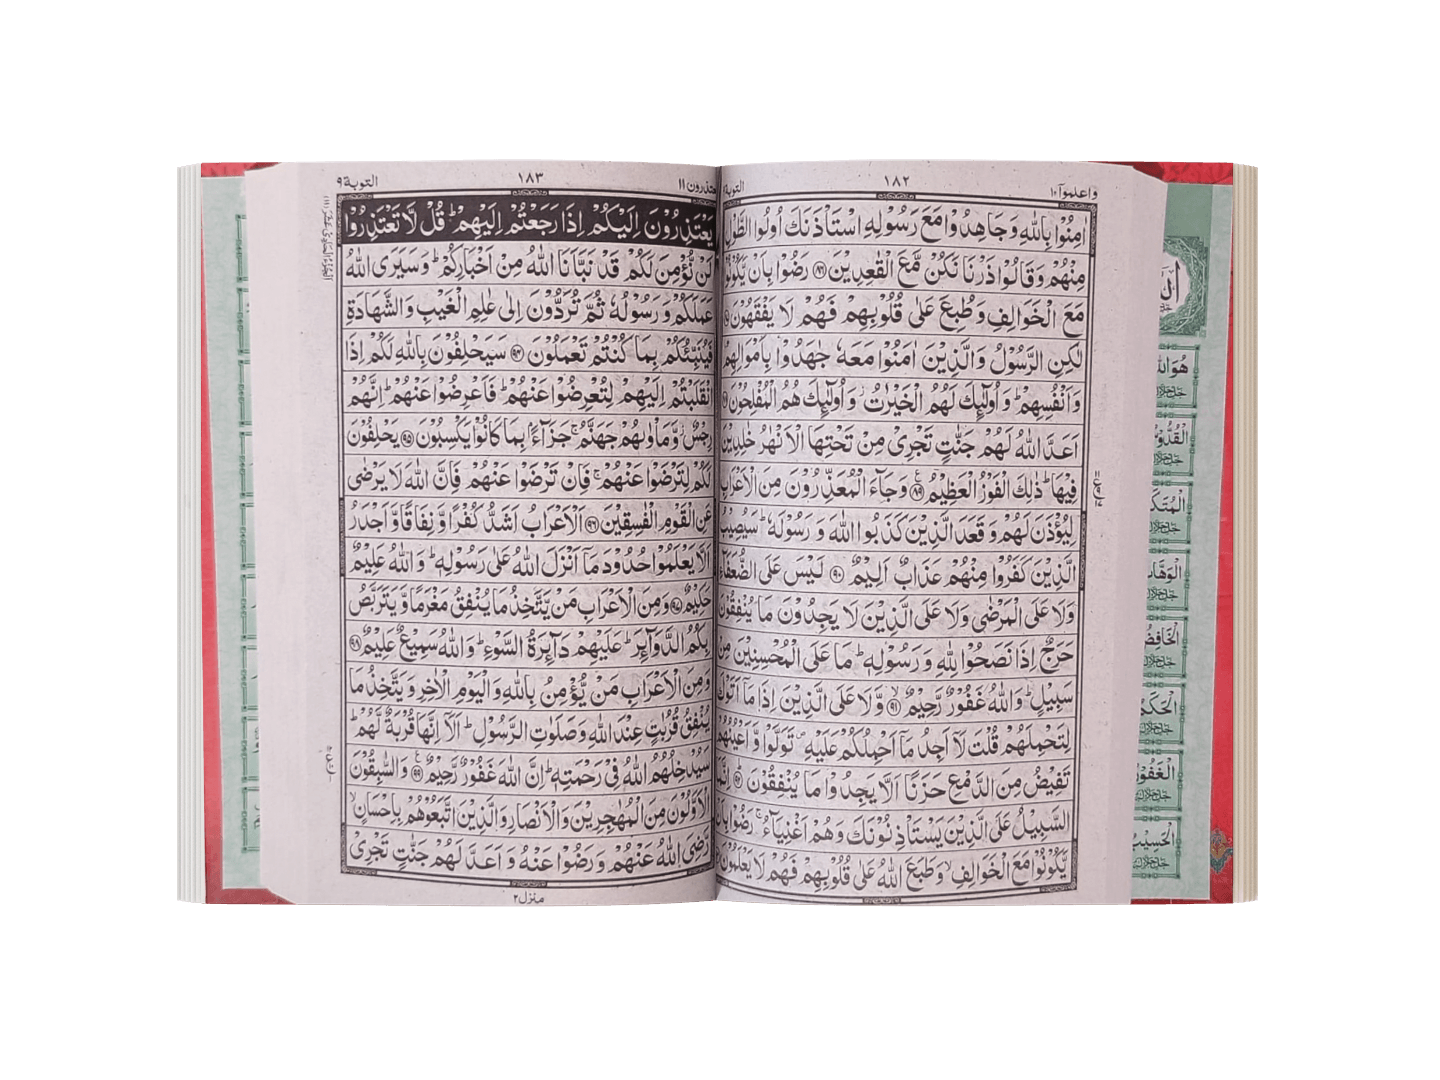 واعلموآ ۱۰
۱۸۲
التوبة ۹
اٰمِنُوْا بِاللّٰهِ وَجَاهِدُوْا مَعَ رَسُوْلِهِ اسْتَاْذَنَكَ اُولُوا الطَّوْلِ
مِنْهُمْ وَقَالُوْا ذَرْنَا نَكُنْ مَّعَ الْقٰعِدِيْنَ ﴿۸۶﴾ رَضُوْا بِاَنْ يَّكُوْنُوْا
مَعَ الْخَوَالِفِ وَطُبِعَ عَلٰى قُلُوْبِهِمْ فَهُمْ لَا يَفْقَهُوْنَ ﴿۸۷﴾
لٰكِنِ الرَّسُوْلُ وَالَّذِيْنَ اٰمَنُوْا مَعَهٗ جٰهَدُوْا بِاَمْوَالِهِمْ
وَاَنْفُسِهِمْ ؕ وَاُولٰٓئِكَ لَهُمُ الْخَيْرٰتُ ؗ وَاُولٰٓئِكَ هُمُ الْمُفْلِحُوْنَ ﴿۸۸﴾
اَعَدَّ اللّٰهُ لَهُمْ جَنّٰتٍ تَجْرِىْ مِنْ تَحْتِهَا الْاَنْهٰرُ خٰلِدِيْنَ
فِيْهَا ؕ ذٰلِكَ الْفَوْزُ الْعَظِيْمُ ﴿۸۹﴾ وَجَآءَ الْمُعَذِّرُوْنَ مِنَ الْاَعْرَابِ
لِيُؤْذَنَ لَهُمْ وَقَعَدَ الَّذِيْنَ كَذَبُوا اللّٰهَ وَرَسُوْلَهٗ ؕ سَيُصِيْبُ
الَّذِيْنَ كَفَرُوْا مِنْهُمْ عَذَابٌ اَلِيْمٌ ﴿۹۰﴾ لَيْسَ عَلَى الضُّعَفَآءِ
وَلَا عَلَى الْمَرْضٰى وَلَا عَلَى الَّذِيْنَ لَا يَجِدُوْنَ مَا يُنْفِقُوْنَ
حَرَجٌ اِذَا نَصَحُوْا لِلّٰهِ وَرَسُوْلِهٖ ؕ مَا عَلَى الْمُحْسِنِيْنَ مِنْ
سَبِيْلٍ ؕ وَاللّٰهُ غَفُوْرٌ رَّحِيْمٌ ۙ﴿۹۱﴾ وَّلَا عَلَى الَّذِيْنَ اِذَا مَآ اَتَوْكَ
لِتَحْمِلَهُمْ قُلْتَ لَآ اَجِدُ مَآ اَحْمِلُكُمْ عَلَيْهِ ۪ تَوَلَّوْا وَّاَعْيُنُهُمْ
تَفِيْضُ مِنَ الدَّمْعِ حَزَنًا اَلَّا يَجِدُوْا مَا يُنْفِقُوْنَ ﴿۹۲﴾ اِنَّمَا
السَّبِيْلُ عَلَى الَّذِيْنَ يَسْتَاْذِنُوْنَكَ وَهُمْ اَغْنِيَآءُ ۚ رَضُوْا بِاَنْ
يَّكُوْنُوْا مَعَ الْخَوَالِفِ ۙ وَطَبَعَ اللّٰهُ عَلٰى قُلُوْبِهِمْ فَهُمْ لَا يَعْلَمُوْنَ
يعتذرون ۱۱
۱۸۳
التوبة ۹
يَعْتَذِرُوْنَ اِلَيْكُمْ اِذَا رَجَعْتُمْ اِلَيْهِمْ ؕ قُلْ لَّا تَعْتَذِرُوْا
لَنْ نُّؤْمِنَ لَكُمْ قَدْ نَبَّاَنَا اللّٰهُ مِنْ اَخْبَارِكُمْ ؕ وَسَيَرَى اللّٰهُ
عَمَلَكُمْ وَرَسُوْلُهٗ ثُمَّ تُرَدُّوْنَ اِلٰى عٰلِمِ الْغَيْبِ وَالشَّهَادَةِ
فَيُنَبِّئُكُمْ بِمَا كُنْتُمْ تَعْمَلُوْنَ ﴿۹۴﴾ سَيَحْلِفُوْنَ بِاللّٰهِ لَكُمْ اِذَا
انْقَلَبْتُمْ اِلَيْهِمْ لِتُعْرِضُوْا عَنْهُمْ ؕ فَاَعْرِضُوْا عَنْهُمْ ؕ اِنَّهُمْ
رِجْسٌ ؗ وَّمَاْوٰىهُمْ جَهَنَّمُ ۚ جَزَآءًۢ بِمَا كَانُوْا يَكْسِبُوْنَ ﴿۹۵﴾ يَحْلِفُوْنَ
لَكُمْ لِتَرْضَوْا عَنْهُمْ ۚ فَاِنْ تَرْضَوْا عَنْهُمْ فَاِنَّ اللّٰهَ لَا يَرْضٰى
عَنِ الْقَوْمِ الْفٰسِقِيْنَ ﴿۹۶﴾ اَلْاَعْرَابُ اَشَدُّ كُفْرًا وَّنِفَاقًا وَّاَجْدَرُ
اَلَّا يَعْلَمُوْا حُدُوْدَ مَآ اَنْزَلَ اللّٰهُ عَلٰى رَسُوْلِهٖ ؕ وَاللّٰهُ عَلِيْمٌ
حَكِيْمٌ ﴿۹۷﴾ وَمِنَ الْاَعْرَابِ مَنْ يَّتَّخِذُ مَا يُنْفِقُ مَغْرَمًا وَّيَتَرَبَّصُ
بِكُمُ الدَّوَآئِرَ ؕ عَلَيْهِمْ دَآئِرَةُ السَّوْءِ ؕ وَاللّٰهُ سَمِيْعٌ عَلِيْمٌ ﴿۹۸﴾
وَمِنَ الْاَعْرَابِ مَنْ يُّؤْمِنُ بِاللّٰهِ وَالْيَوْمِ الْاٰخِرِ وَيَتَّخِذُ مَا
يُنْفِقُ قُرُبٰتٍ عِنْدَ اللّٰهِ وَصَلَوٰتِ الرَّسُوْلِ ؕ اَلَآ اِنَّهَا قُرْبَةٌ لَّهُمْ ؕ
سَيُدْخِلُهُمُ اللّٰهُ فِىْ رَحْمَتِهٖ ؕ اِنَّ اللّٰهَ غَفُوْرٌ رَّحِيْمٌ ﴿۹۹﴾ وَالسّٰبِقُوْنَ
الْاَوَّلُوْنَ مِنَ الْمُهٰجِرِيْنَ وَالْاَنْصَارِ وَالَّذِيْنَ اتَّبَعُوْهُمْ بِاِحْسَانٍ ۙ
رَّضِىَ اللّٰهُ عَنْهُمْ وَرَضُوْا عَنْهُ وَاَعَدَّ لَهُمْ جَنّٰتٍ تَجْرِىْ
منزل ۲
هُوَ اللّٰهُ
الْقُدُّوْ
الْمُتَكَ
الْوَهَّا
الْخَافِضُ
الْحَكَمُ
الْغَفُوْرُ
الْحَسِيْبُ